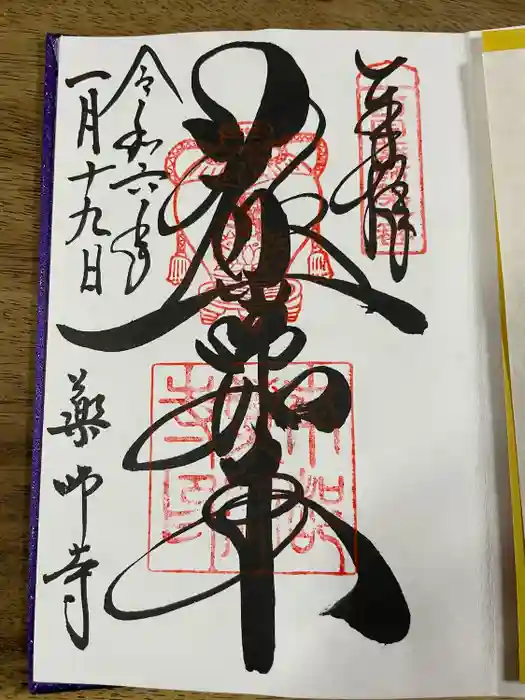 奉拝
薬師如来
令和六年
一月十九日
薬師寺